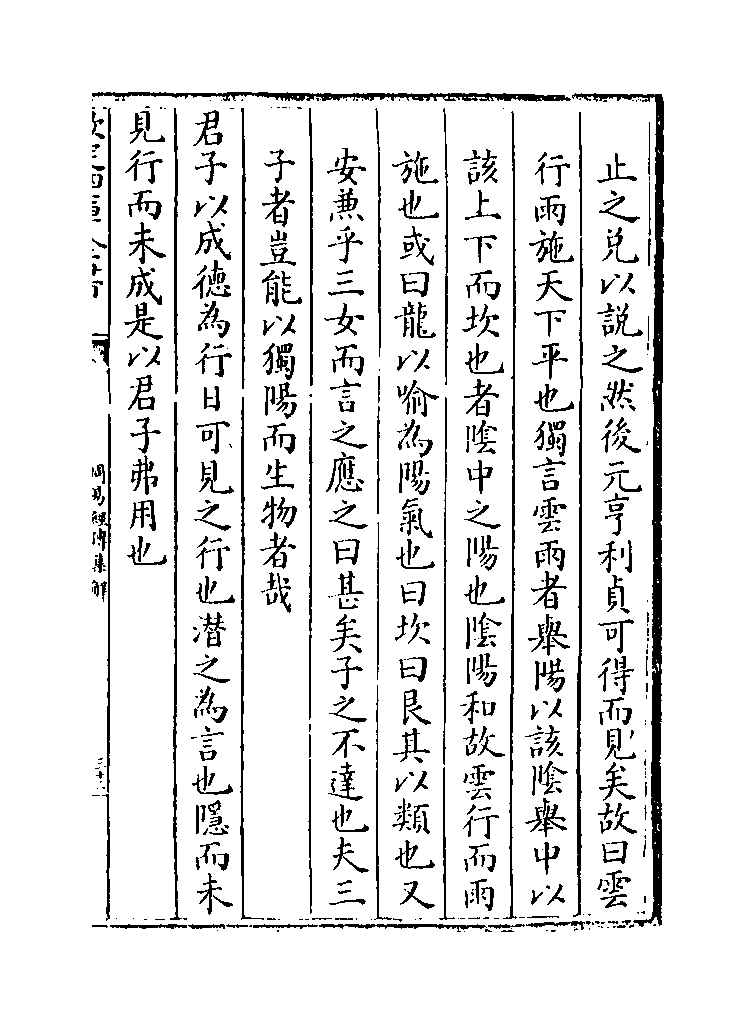 止之兑以說之然後元亨利貞可得而見矣故曰雲
行雨施天下平也獨言雲雨者舉陽以該陰舉中以
該上下而坎也者陰中之陽也陰陽和故雲行而雨
施也或曰龍以喻為陽氣也曰坎曰艮其以類也又
安兼乎三女而言之應之曰甚矣子之不達也夫三
子者豈能以獨陽而生物者哉
君子以成德為行日可見之行也潛之為言也隱而未
見行而未成是以君子弗用也
欽定四庫全書
周易經傳集解
三十二